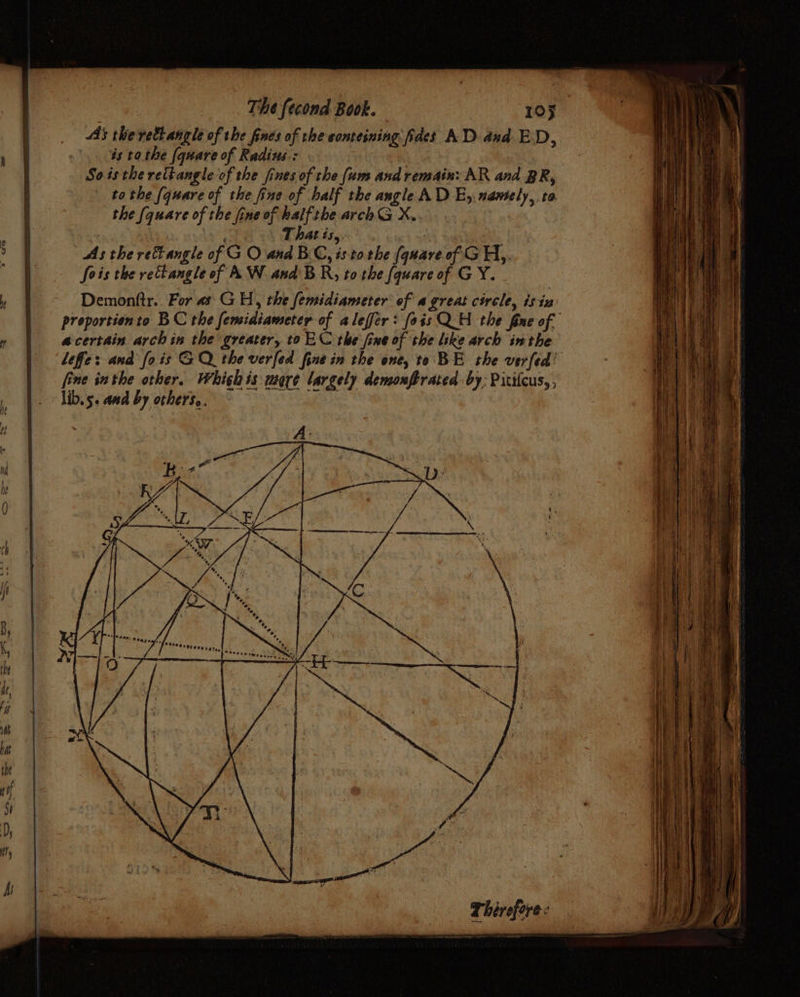 The ſecond Book. 105
As the rectangle of the ſines of the conteining ſides AD and ED,
is to the ſquare of Radius:
So is the rectangle of the ſines of the ſum and remain: AR and BR,
to the ſquare of the ſine of half the angle AD E, namely, to
the ſquare of the ſine of half the arch G X.
That is,
As the rectangle of G O and B C, is to the ſquare of G H,
ſo is the rectangle of A W and B R, to the ſquare of G Y.
Demonſtr. For as G H, the ſemidiameter of a great circle, is in
proportion to B C the ſemidiameter of a leſſer: ſo is Q H the ſine of
a certain arch in the greater, to E C the ſine of the like arch in the
leſſe: and ſo is G Q the verſed ſine in the one, to B E the verſed
ſine in the other. Which is more largely demonſtrated by Pitiſcus,
lib. 5. and by others.
A
B D
R
S Z E
G
W
C
Q
K Y
N O H
X
T
Therefore: